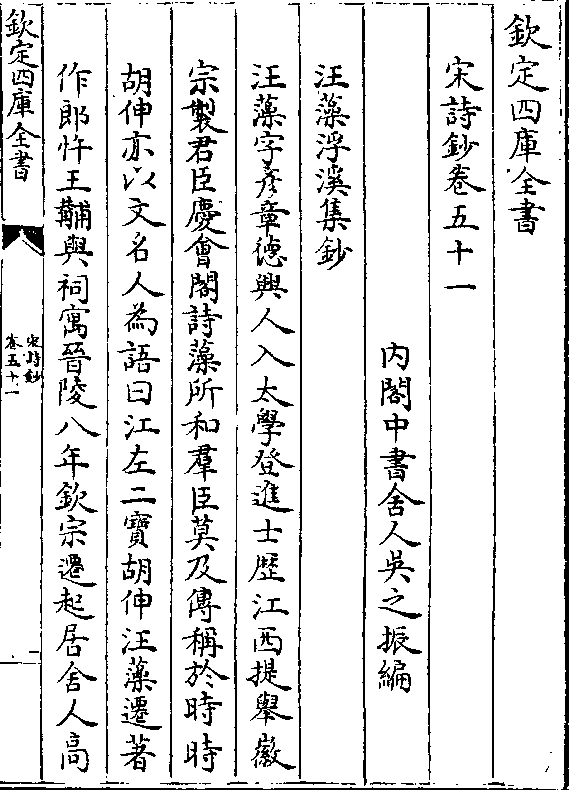 欽定四庫全書
宋詩鈔卷五十一
內閣中書舍人吳之振編
汪藻浮溪集鈔
汪藻字彥章德興人入太學登進士歴江西提舉徽
宗製君臣慶會閣詩藻所和羣臣莫及傳稱於時時
胡伸亦以文名人為語曰江左二寶胡伸汪藻遷著
作郎忤王黼與祠寓晉陵八年欽宗遷起居舍人高
欽定四庫全書
宋詩鈔
卷五十一
一